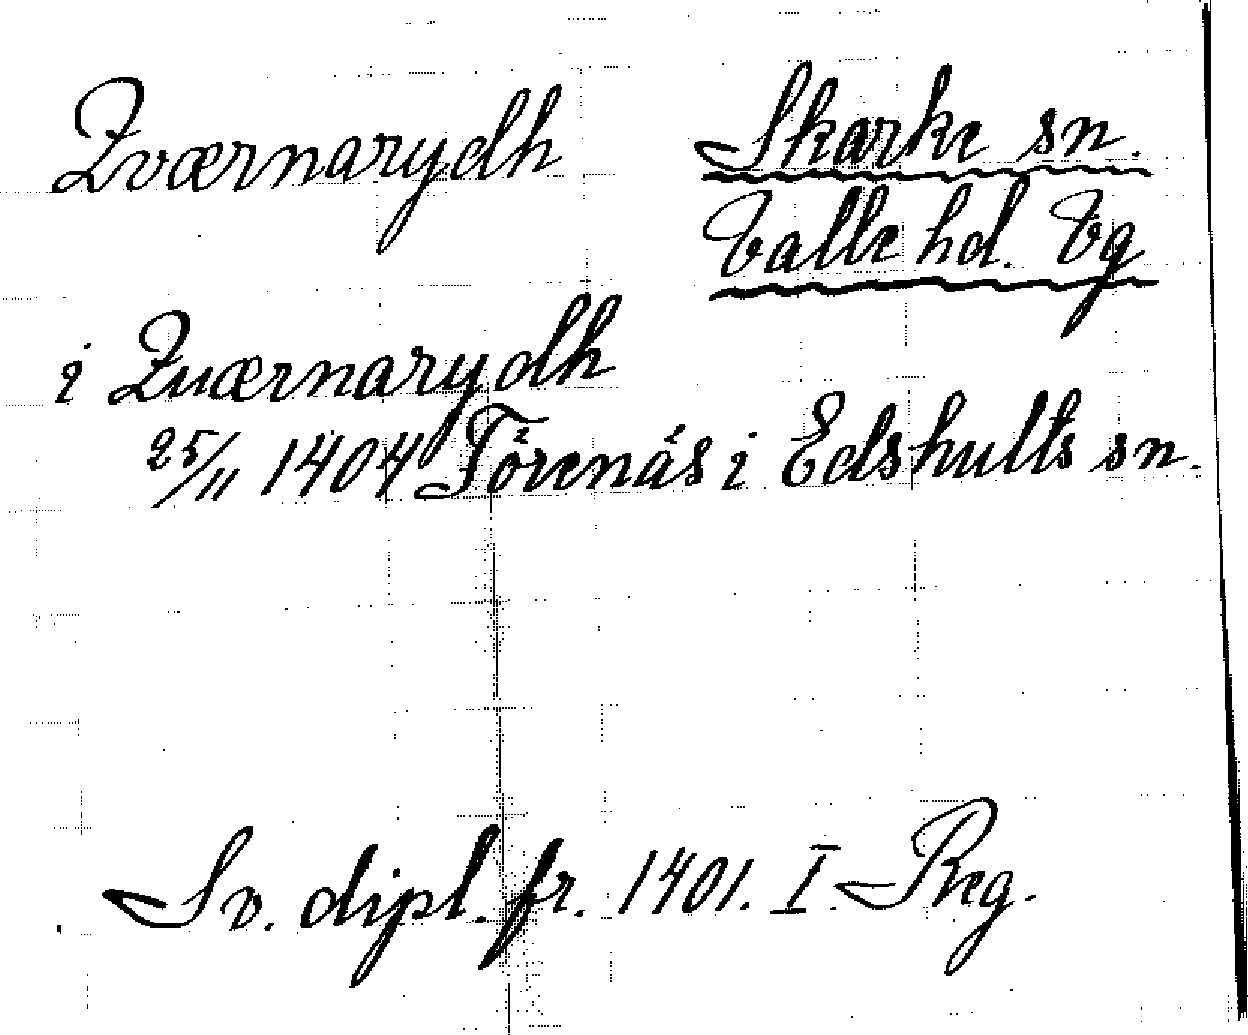 Qværnarydh
Skarke sn.
Valle hd. Vg
i Quærnarydh
25/11 1404 Törenäs i Edshults sn.
Sv. dipl. fr. 1401. I. Reg.